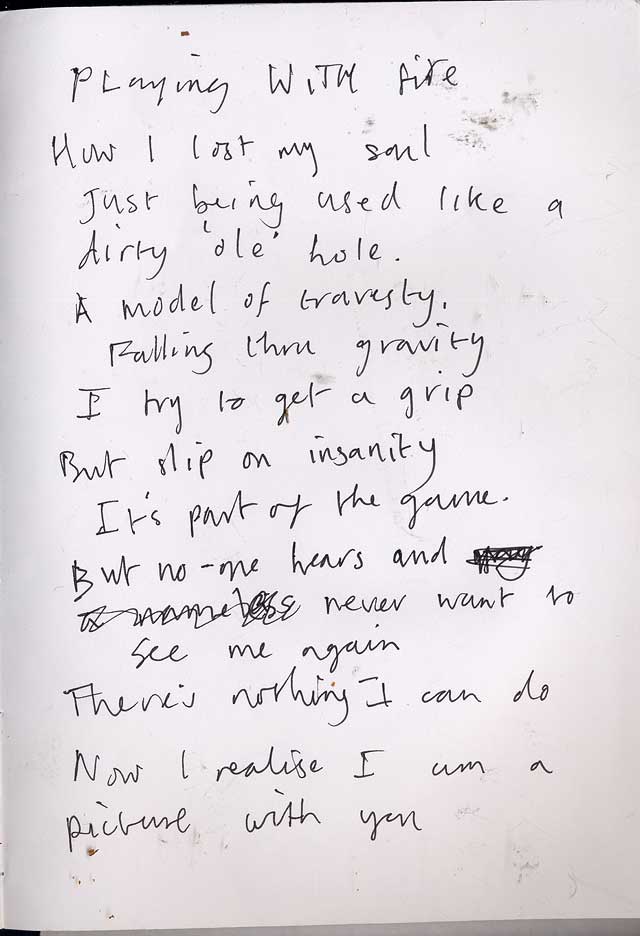 PLaying WITH fire
How I lost my soul
Just being used like a
dirty 'ole' hole.
A model of travesty.
Falling thru gravity
I try to get a grip
But slip on insanity
It's part of the game.
But no-one hears and
never want to
see me again
There's nothing I can do
Now I realise I am a
picture with you